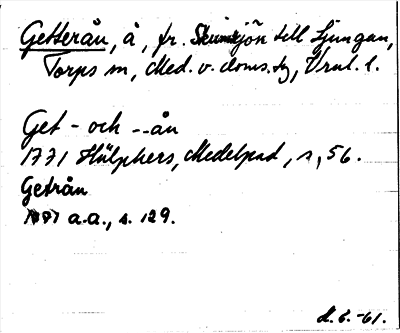 Getterån, å, fr. Skumsjön till Ljungan,
Torps sn, Med. v. doms. tg, Vrnl. l.
Get - och - - ån
1771 Hülphers, Medelpad, s, 56.
Getrån
1771 a.a., s. 129.
d. 6. -61.